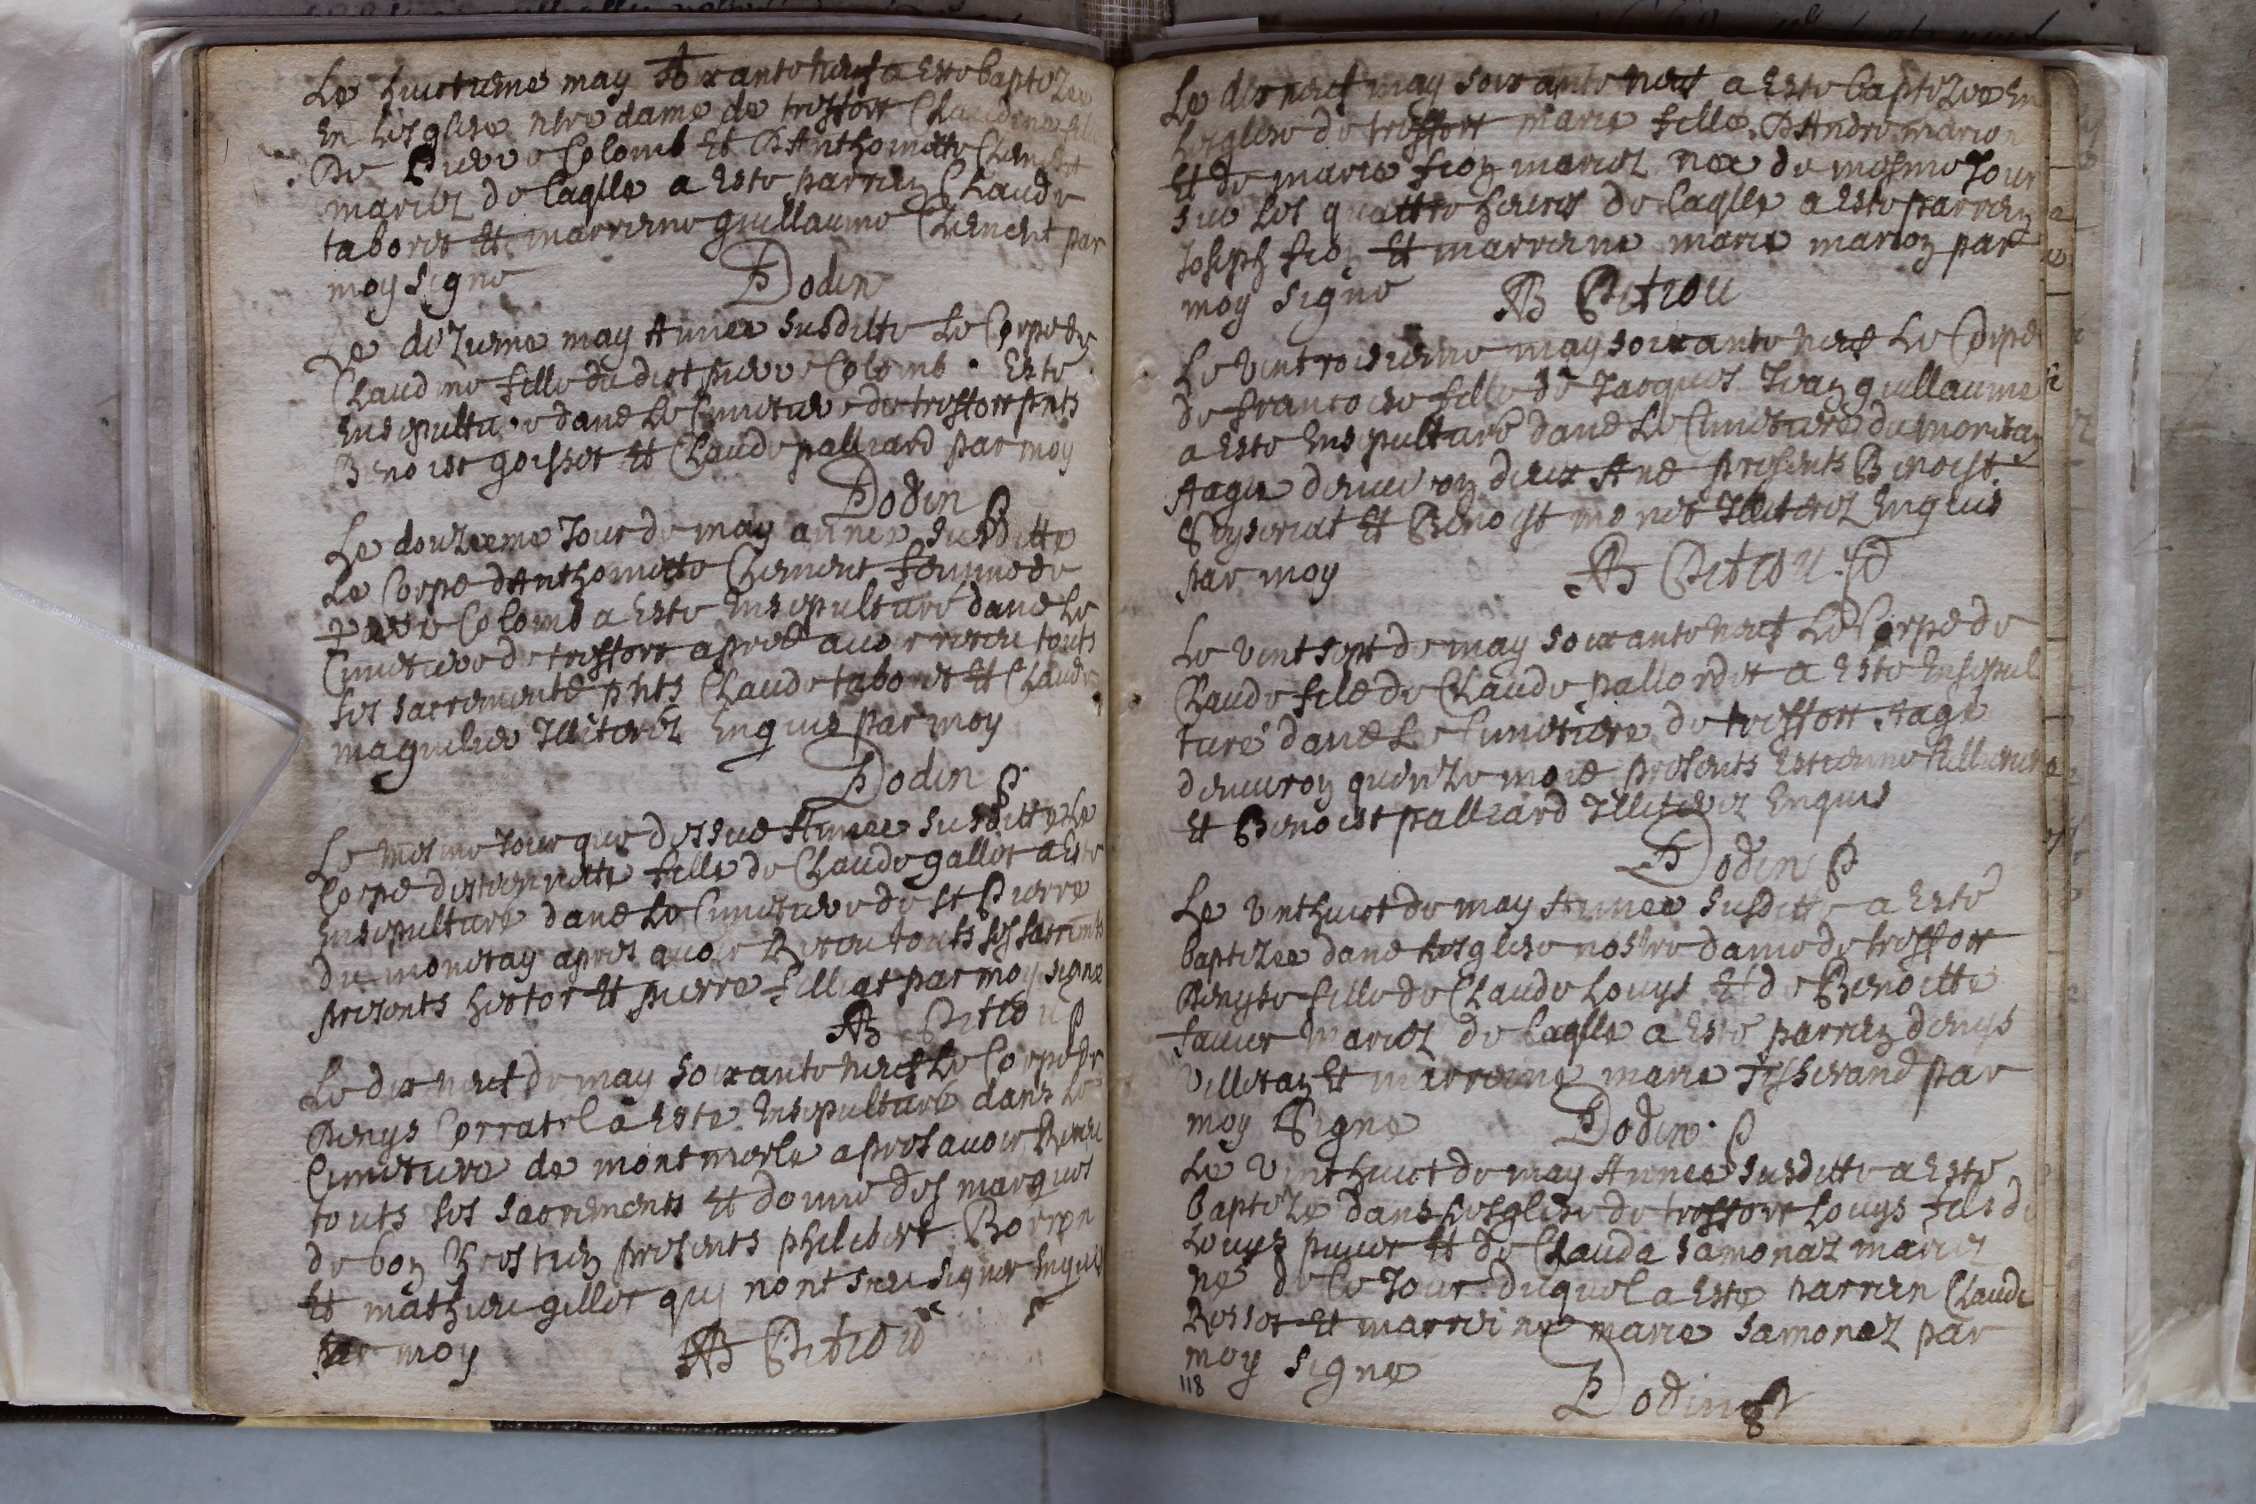 Le huictieme may soixante neuf a este baptizee
En Lesglise nre dame de tressort Claudine fille
De Pierre Colomb Et D'Anthoinette Clement
mariez de laqlle a este parrien Claude
taboret Et marrienne guillaume Clement par
moy signe Dodin
Le dizieme may Annee susditte Le Corps de
Claudine fille du dict pierre Colomb Este
Ensepulture dans Le Cimetiere de tressort pnts
Benoist goisset Et Claude palliard par moy
Dodin P
Le douzieme Jour de may annee susditte
Le Corps d'Anthoinette Clement femme de
pierre Colomb a Este Ensepulturé dans Le
Cimetiere de tressort apres avoir receu touts
ses sacrements pnts Claude taboret Et Claude
magnelier Illiterez Enquis par moy
Dodin P
Le mesme Jour que dessus Annee susditte Le
Corps d'estiennette fille de Claude gallet a Este
Ensepulturé dans Le Cimetiere de st Pierre
du monetay apres avoir Receu touts ses sacremts
presents hector Et pierre filliat par moy signe
AB Petiou P
Le dix neuf de may soixante neuf Le Corps de
Denys Corratel a Este Ensepulturé dans Le
Cimetiere de montmerle apres avoir Receu
touts ses sacrements Et donné des marques
de bon Chrestien presents philibert
Et mathieu gillet quy nont sceu signer Enquis
par moy AB Petiou
Le dix neuf may soixante neuf a Este baptizee En
Lesglise de tressort marie fille D'Andre marion
Et de marie fion mariez nee de mesme Jour
sur les quattre heures de laqlle a este parrien
Joseph fion Et marrienne marie marion par
moy signe AB Petiou
Le vint troisieme may soixante neuf Le Corps
de francoise fille de Jacques Jean guillaume
a Este Ensepulturé dans Le Cimetiere du monetay
Aagee denviron deux Ans presents Benoist
Seyseriat Et Benoist monet Illiterez Enquis
par moy AB Petiou
Le vint sept de may soixante neuf Le Corps de
Claude fils de Claude pallordet a Este Ensepul
turé dans Le Cimetiere de tressort Aagé
denviron quinze mois presents Estienne
Et Benoist palliard Illiterez Enquis
Dodin P
Le vint huict de may Annee susditte a Esté
baptizee dans Lesglise nostre dame de tressort
Denyse fille de Claude Louys Et de Benoitte
faure mariez de laqlle a Esté parrien denys
villetan Et marrienne marie tisserand par
moy Signe Dodin P
Le vint huict de may Annee susditte a Esté
baptizé dans Lesglise de tressort Louys fils de
Louys Et de Claude samonaz mariez
né de Ce Jour duquel a este parrien Claude
Rosset Et marreine marie samonaz par
moy signe
118 Dodin P